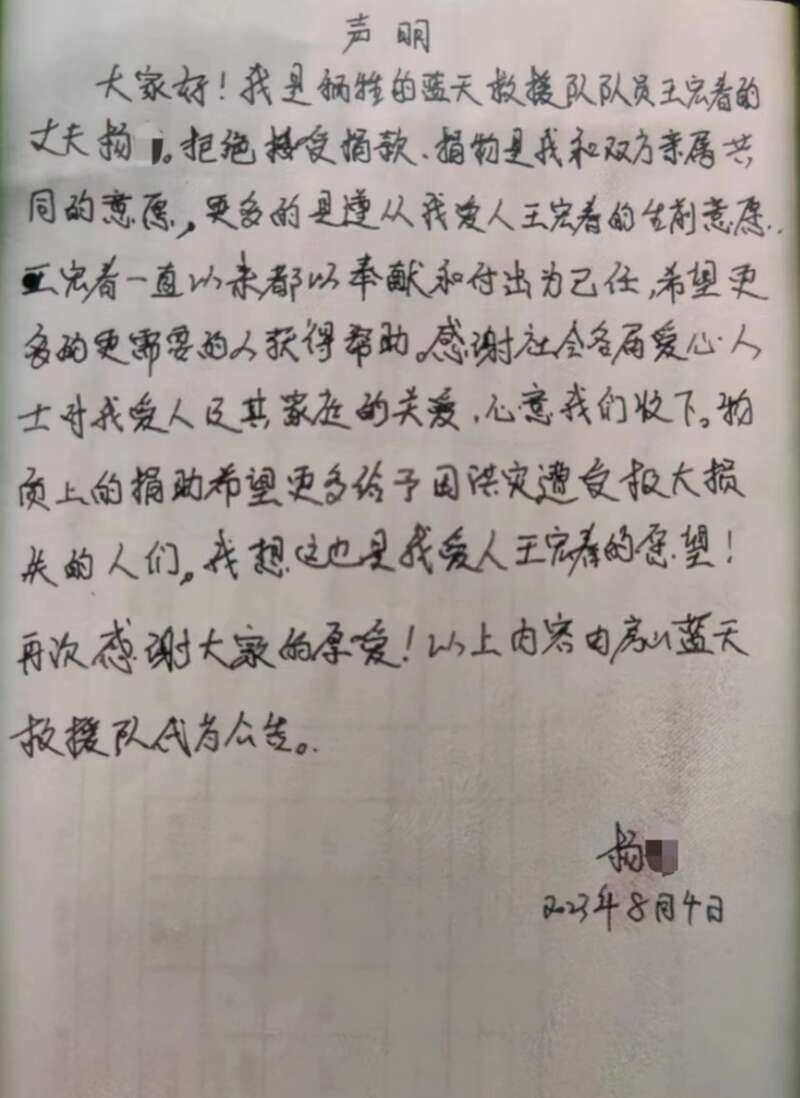 声明
大家好！我是牺牲的蓝天救援队队员王宏春的
丈夫杨。拒绝接受捐款、捐物是我和双方亲属共
同的意愿，更多的是遵从我爱人王宏春的生前意愿.
王宏春一直以来都以奉献和付出为己任，希望更
多的更需要的人获得帮助。感谢社会各届爱心人
士对我爱人及其家庭的关爱，心意我们收下。物
质上的捐助希望更多给予因洪灾遭受极大损
失的人们。我想这也是我爱人王宏春的愿望！
再次感谢大家的厚爱！以上内容由房山蓝天
救援队代为公告。
杨
2023年8月4日